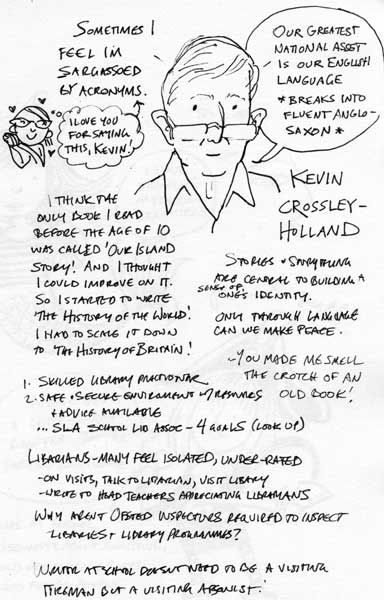 SOMETIMES I
FEEL I'M
SARGASSOED
BY ACRONYMS.
OUR GREATEST
NATIONAL ASSET
IS OUR ENGLISH
LANGUAGE
*BREAKS INTO
FLUENT ANGLO-
SAXON*
I LOVE YOU
FOR SAYING
THIS, KEVIN!
KEVIN
CROSSLEY-
HOLLAND
I THINK THE
ONLY BOOK I READ
BEFORE THE AGE OF 10
WAS CALLED 'OUR ISLAND
STORY'! AND I THOUGHT
I COULD IMPROVE ON IT.
SO I STARTED TO WRITE
'THE HISTORY OF THE WORLD'!
I HAD TO SCALE IT DOWN
TO 'THE HISTORY OF BRITAIN'!
STORIES + STORYTELLING
ARE CENTRAL TO BUILDING A
SENSE OF
ONE'S IDENTITY.
ONLY THROUGH LANGUAGE
CAN WE MAKE PEACE.
-YOU MADE ME SMELL
THE CROTCH OF AN
OLD BOOK!
1. SKILLED LIBRARY PRACTITIONER
2. SAFE + SECURE ENVIRONMENT W/ RESOURCES
+ ADVICE AVAILABLE
... SLA SCHOOL LIB ASSOC - 4 GOALS (LOOK UP)
LIBRARIANS - MANY FEEL ISOLATED, UNDER-RATED
- ON VISITS, TALK TO LIBRARIAN, VISIT LIBRARY
- WRITE TO HEAD TEACHERS APPRECIATING LIBRARIANS
WHY AREN'T OFSTED INSPECTORS REQUIRED TO INSPECT
LIBRARIES + LIBRARY PROGRAMMES?
WRITER AT SCHOOL DOESN'T NEED TO BE A VISITING
FIREMAN BUT A VISITING ARSONIST!